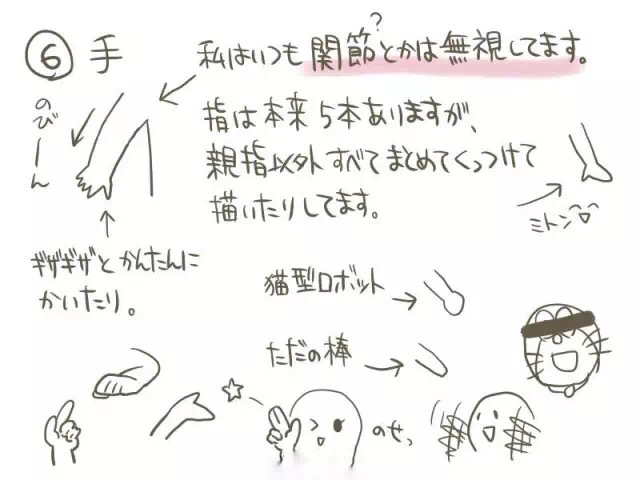 ⑥ 手
私はいつも関節とかは無視してます。
?
のびーん
指は本来5本ありますが、
親指以外すべてまとめてくっつけて
描いたりしてます。
ミトン
ギザギザとかんたんに
かいたり。
猫型ロボット
ただの棒
のせっ